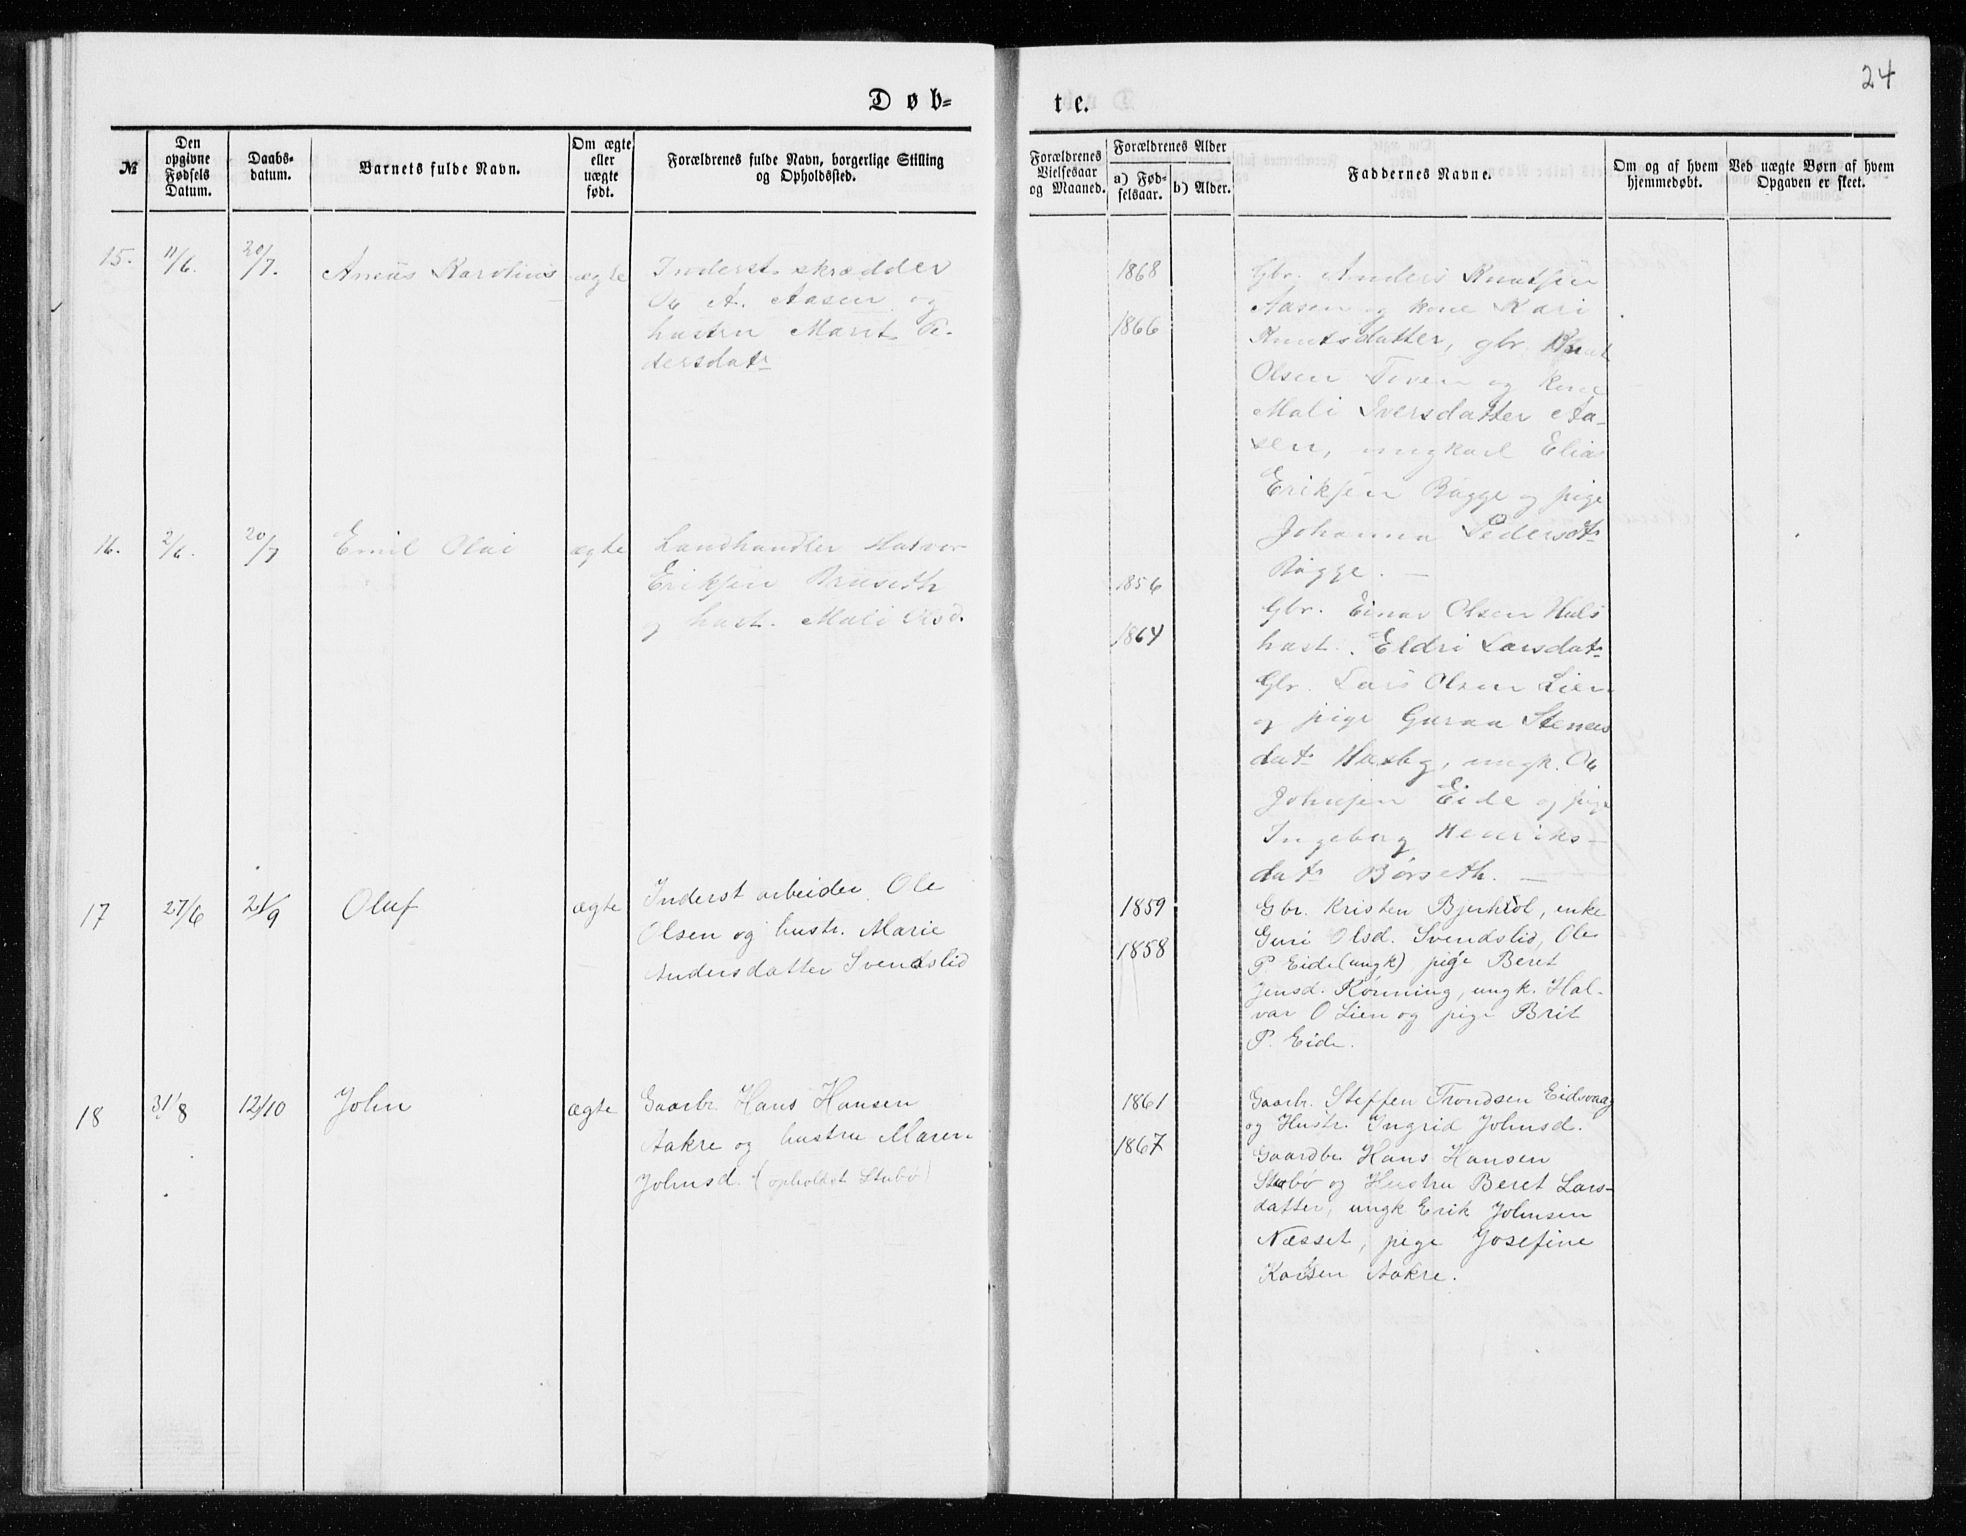 24
Døb-
te.
№
Den opgivne Fødsels Datum.
Daabs-datum.
Barnets fulde Navn.
Om ægte eller uægte født.
Forældrenes fulde Navn, borgerlige Stilling og Opholdssted.
Forældrenes Vielsesaar og Maaned.
Forældrenes Alder
a) Fødselsaar.
b) Alder.
Faddernes Navne.
Om og af hvem hjemmedøbt.
Ved uægte Børn af hvem Opgaven er skeet.
15.
11/6.
20/7.
Karolius
ægte
Inderst. skrædder
Ole A. Aasen og
hustru Marit Pe-
dersdatr
1868
1866
Gbr. Anders Knutsen
Aasen og kone Kari
Knutsdatter, gbr. Knut
Olsen og kone
Mali Iversdatter Aa-
sen, ungkarl Elias
Eriksen Bugge og pige
Johanna Pedersdtr
Bugge. —
16.
2/6.
20/7
Emil Olai
ægte
Landhandler Halvor
Eriksen Bruseth
og hust. Mali Olsd.
1856
1864
Gbr. Einar Olsen Hals
hust. Eldri Larsdatr
Gbr. Lars Olsen Lien
og pige Guraa
datr Husby, ungk. Ole
Johnsen Eide og pige
Ingeborg Henriks-
datr Børseth. —
17
27/6
21/9
Oluf
ægte
Inderst arbeider Ole
Olsen og hustr. Marie
Andersdatter Svendslid
1859
1858
Gbr. Kristen, enke
Guri Olsd. Svendslid, Ole
P Eide (ungk) pige Beret
Jensd. Rønning, ungk. Hal-
var O Lien og pige Brit
P. Eide.
18
31/8
12/10
John
ægte
Gaarbr. Hans Hansen
Aakre og hustru Maren
Johnsd. (opholdst Stubø)
1861
1867
Gaarb. Steffen Trondsen Eidsvaag
og Hustr. Ingrid Johnsd.
Gaardbr. Hans Hansen
Stubø og Hustru Beret Lars-
datter, ungk Erik Johnsen
Næsset, pige Josefine
Aakre.